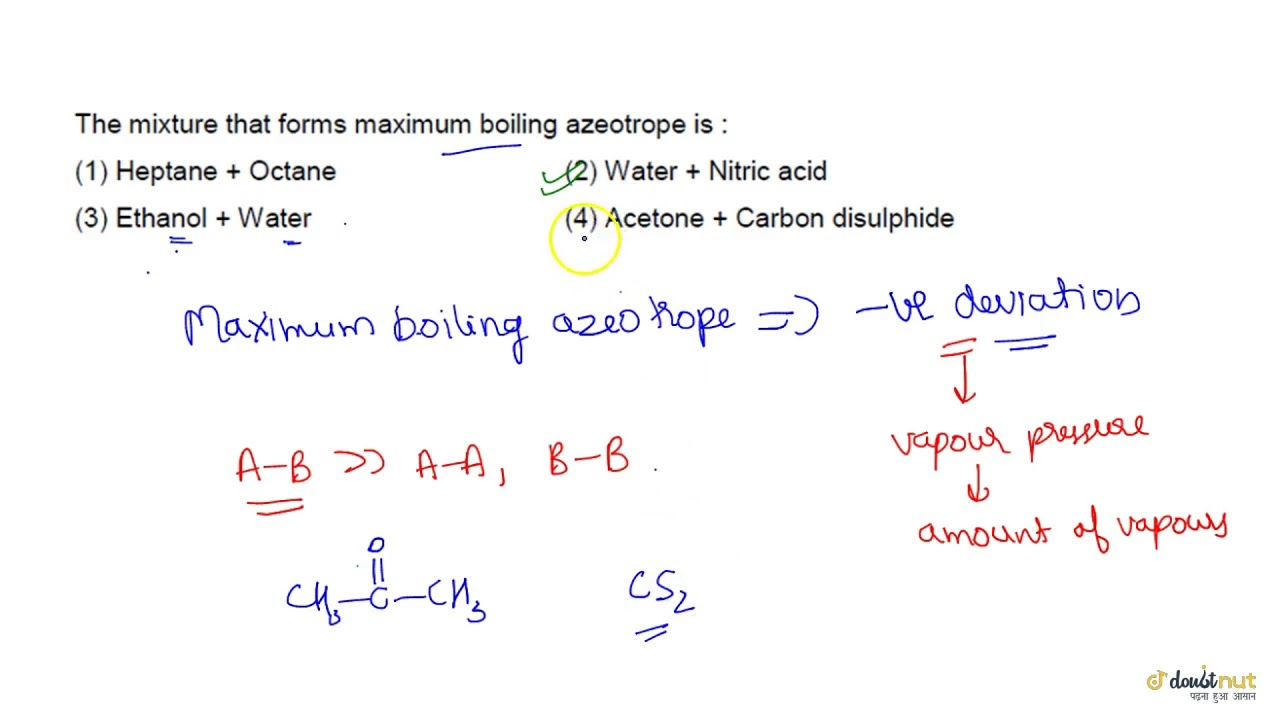 The mixture that forms maximum boiling azeotrope is :
(1) Heptane + Octane (2) Water + Nitric acid
(3) Ethanol + Water (4) Acetone + Carbon disulphide
Maximum boiling azeotrope => -ve deviation
vapour pressure
A-B >> A-A, B-B
amount of vapours
O
CH3-C-CH3 CS2
doubtnut
पढ़ना हुआ आसान